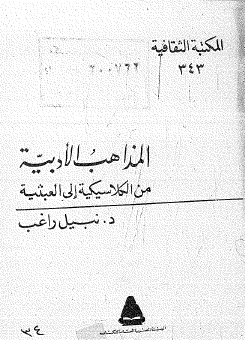 المكتبة الثقافية
٣٤٣
٢٠٠٧٦٦
المذاهب الأدبية
من الكلاسيكية إلى العبثية
د. نبيل راغب
٣٤